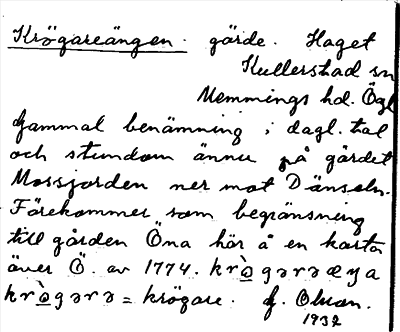 Krögareängen. gärde. Haget
Kullerstad sn
Memmings hd. Ögl
Gammal benämning i dagl. tal
och stundom ännu på gärdet
Mossjorden ner mot Dänseln.
Förekommer som begränsning
till gården Öna här å en karta
över Ö. av 1774. krò̲gərəæŋa
krò̲gərə = krögare. G. Olson.
1932